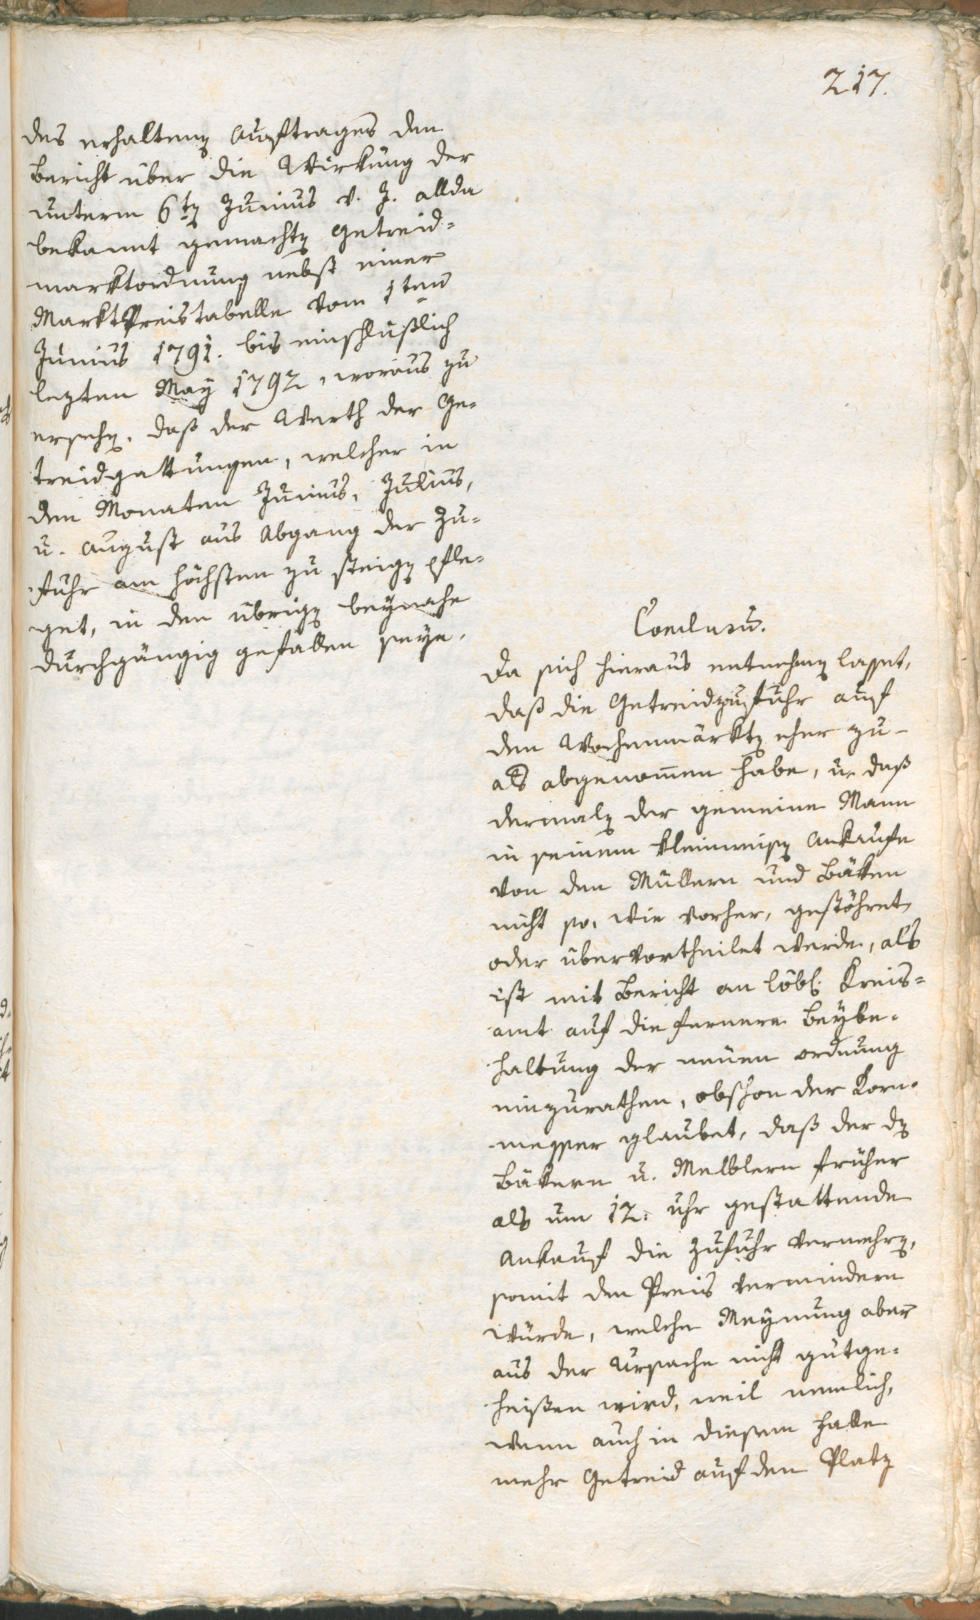 217.
des erhaltenen Auftrages den
Bericht über die Wirkung der
unterm 6ten Junius v. J. allda
bekannt gemachten Getreid-
marktordnung nebst einer
MarktPreistabelle vom 1ten
Junius 1791. bis einschlüßlich
lezten May 1792, woraus zu
ersehen, daß der Werth der Ge-
treidgattungen, welcher in
den Monaten Junius, Julius,
u. August aus Abgang der Zu-
fuhr am höchsten zu steigen pfle-
get, in den übrigen beynahe
durchgängig gefallen seye.
Conclusum.
Da sich hieraus entnehmen lasset,
daß die Getreidzufuhr auf
den Wochenmärkten eher zu-
als abgenommen habe, u. daß
dermalen der gemeine Mann
in seinem kleinweisen Ankaufe
von den Müllern und Bäken
nicht so, wie vorher, gestöhret,
oder übervortheilet werde, als
ist mit Bericht an löbl. Kreis-
amt auf die fernere Beybe-
haltung der neuen Ordnung
einzurathen, obschon der Korn-
messer glaubet, daß der den
Bäkern u. Melblern früher
als um 12. Uhr gestattende
Ankauf die Zufuhr vermehren,
somit den Preis vermindern
würde, welche Meynung aber
aus der Ursache nicht gutge-
heißen wird, weil nemlich,
wenn auch in diesem Falle
mehr Getreid auf den Platz